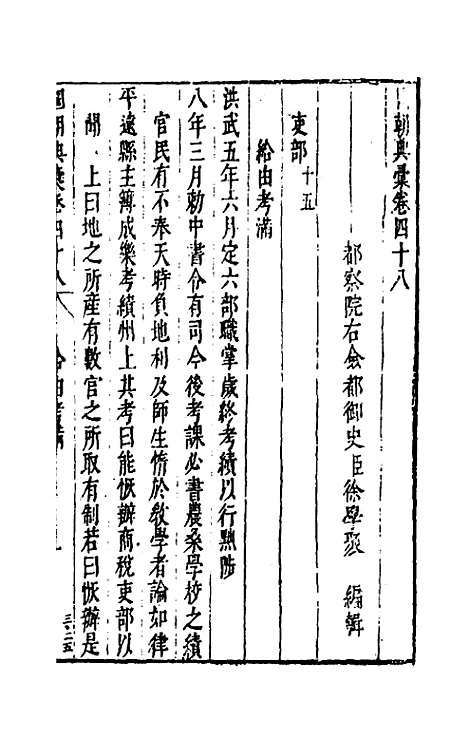 朝典彙卷四十八
都察院右僉都御史臣徐學聚 編輯
吏部十五
給由考滿
洪武五年六月定六部職掌歲終考績以行黜陟
八年三月勅中書令有司今後考課必書農桑學校之績
官民有不奉天時負地利及師生惰於敎學者論如律
平遠縣主簿成樂考績州上其考曰能恢辦商稅吏部以
聞 上曰地之所産有數官之所取有制若曰恢辦是
國朝典彙卷四十八 給由考滿